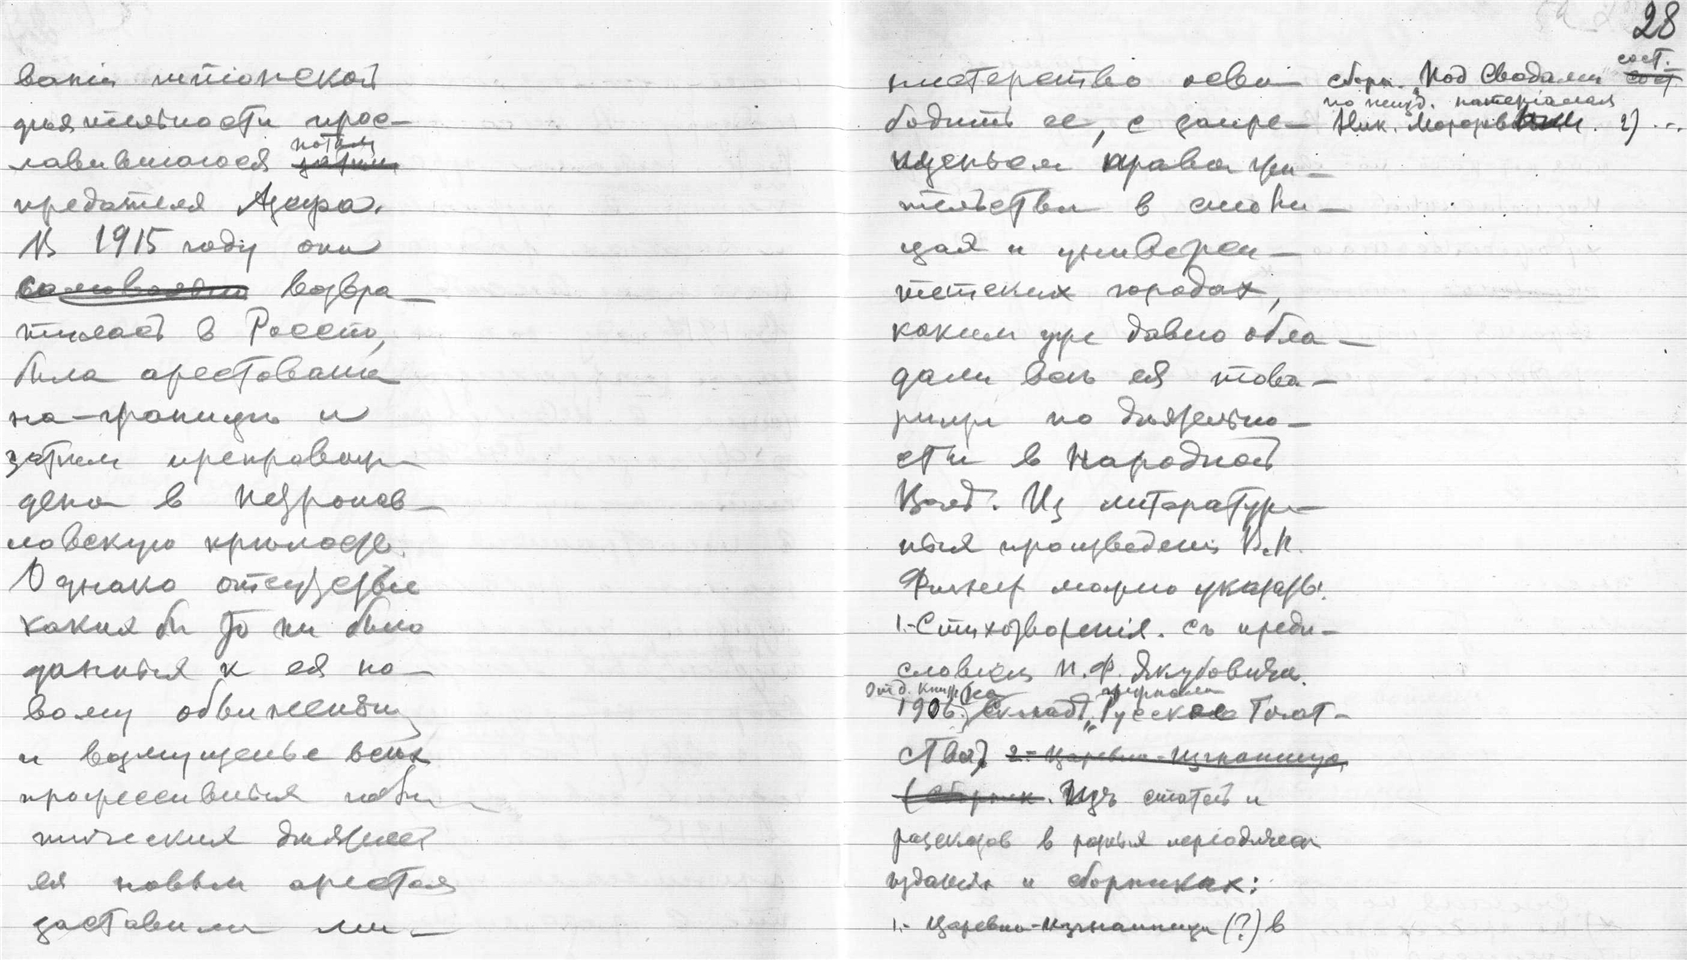 ванiи шпiонской
дѣятельности прос-
лавившагося потомъ
предателя Азефа.
В 1915 году она
самовольно возвра-
тилась в Россiю,
была арестована
на-границѣ и
затѣм препровож-
дена в Петропав-
ловскую крѣпость.
Однако отсутствiе
каких бы то ни было
данныя к ея но-
вому обвиненiю
и возмущенье всѣх
прогрессивныя поли-
тическия дѣятелей
ея новым арестоя
заставили ми-
28
нистерство осво-
бодить ее, с запре-
щеньем права жи-
тельства в столи-
цая и универси-
тетских городах,
каким уже давно обла-
дали всѣ ея това-
рищи по дѣятельно-
сти в Народной
Волѣ. Из литератур-
ныя произведенiй В.Н.
Фигнер можно указать:
1.-Стихотворенiя. Съ преди-
словiем П.Ф. Якубовича.
Отд. книжка журнала
1906. Склад "Русское Богат-
ства) 2.- Царевна-Изгнанница,
(сборник. Изъ статей и
разсказов в разныя перiодическ
изданiях и сборниках:
1.- Царевна-изгнанница (?) в
сборн. "Под Сводами" сост.
по неизд. матерiалам
Ник. Морозовым. 2) ...